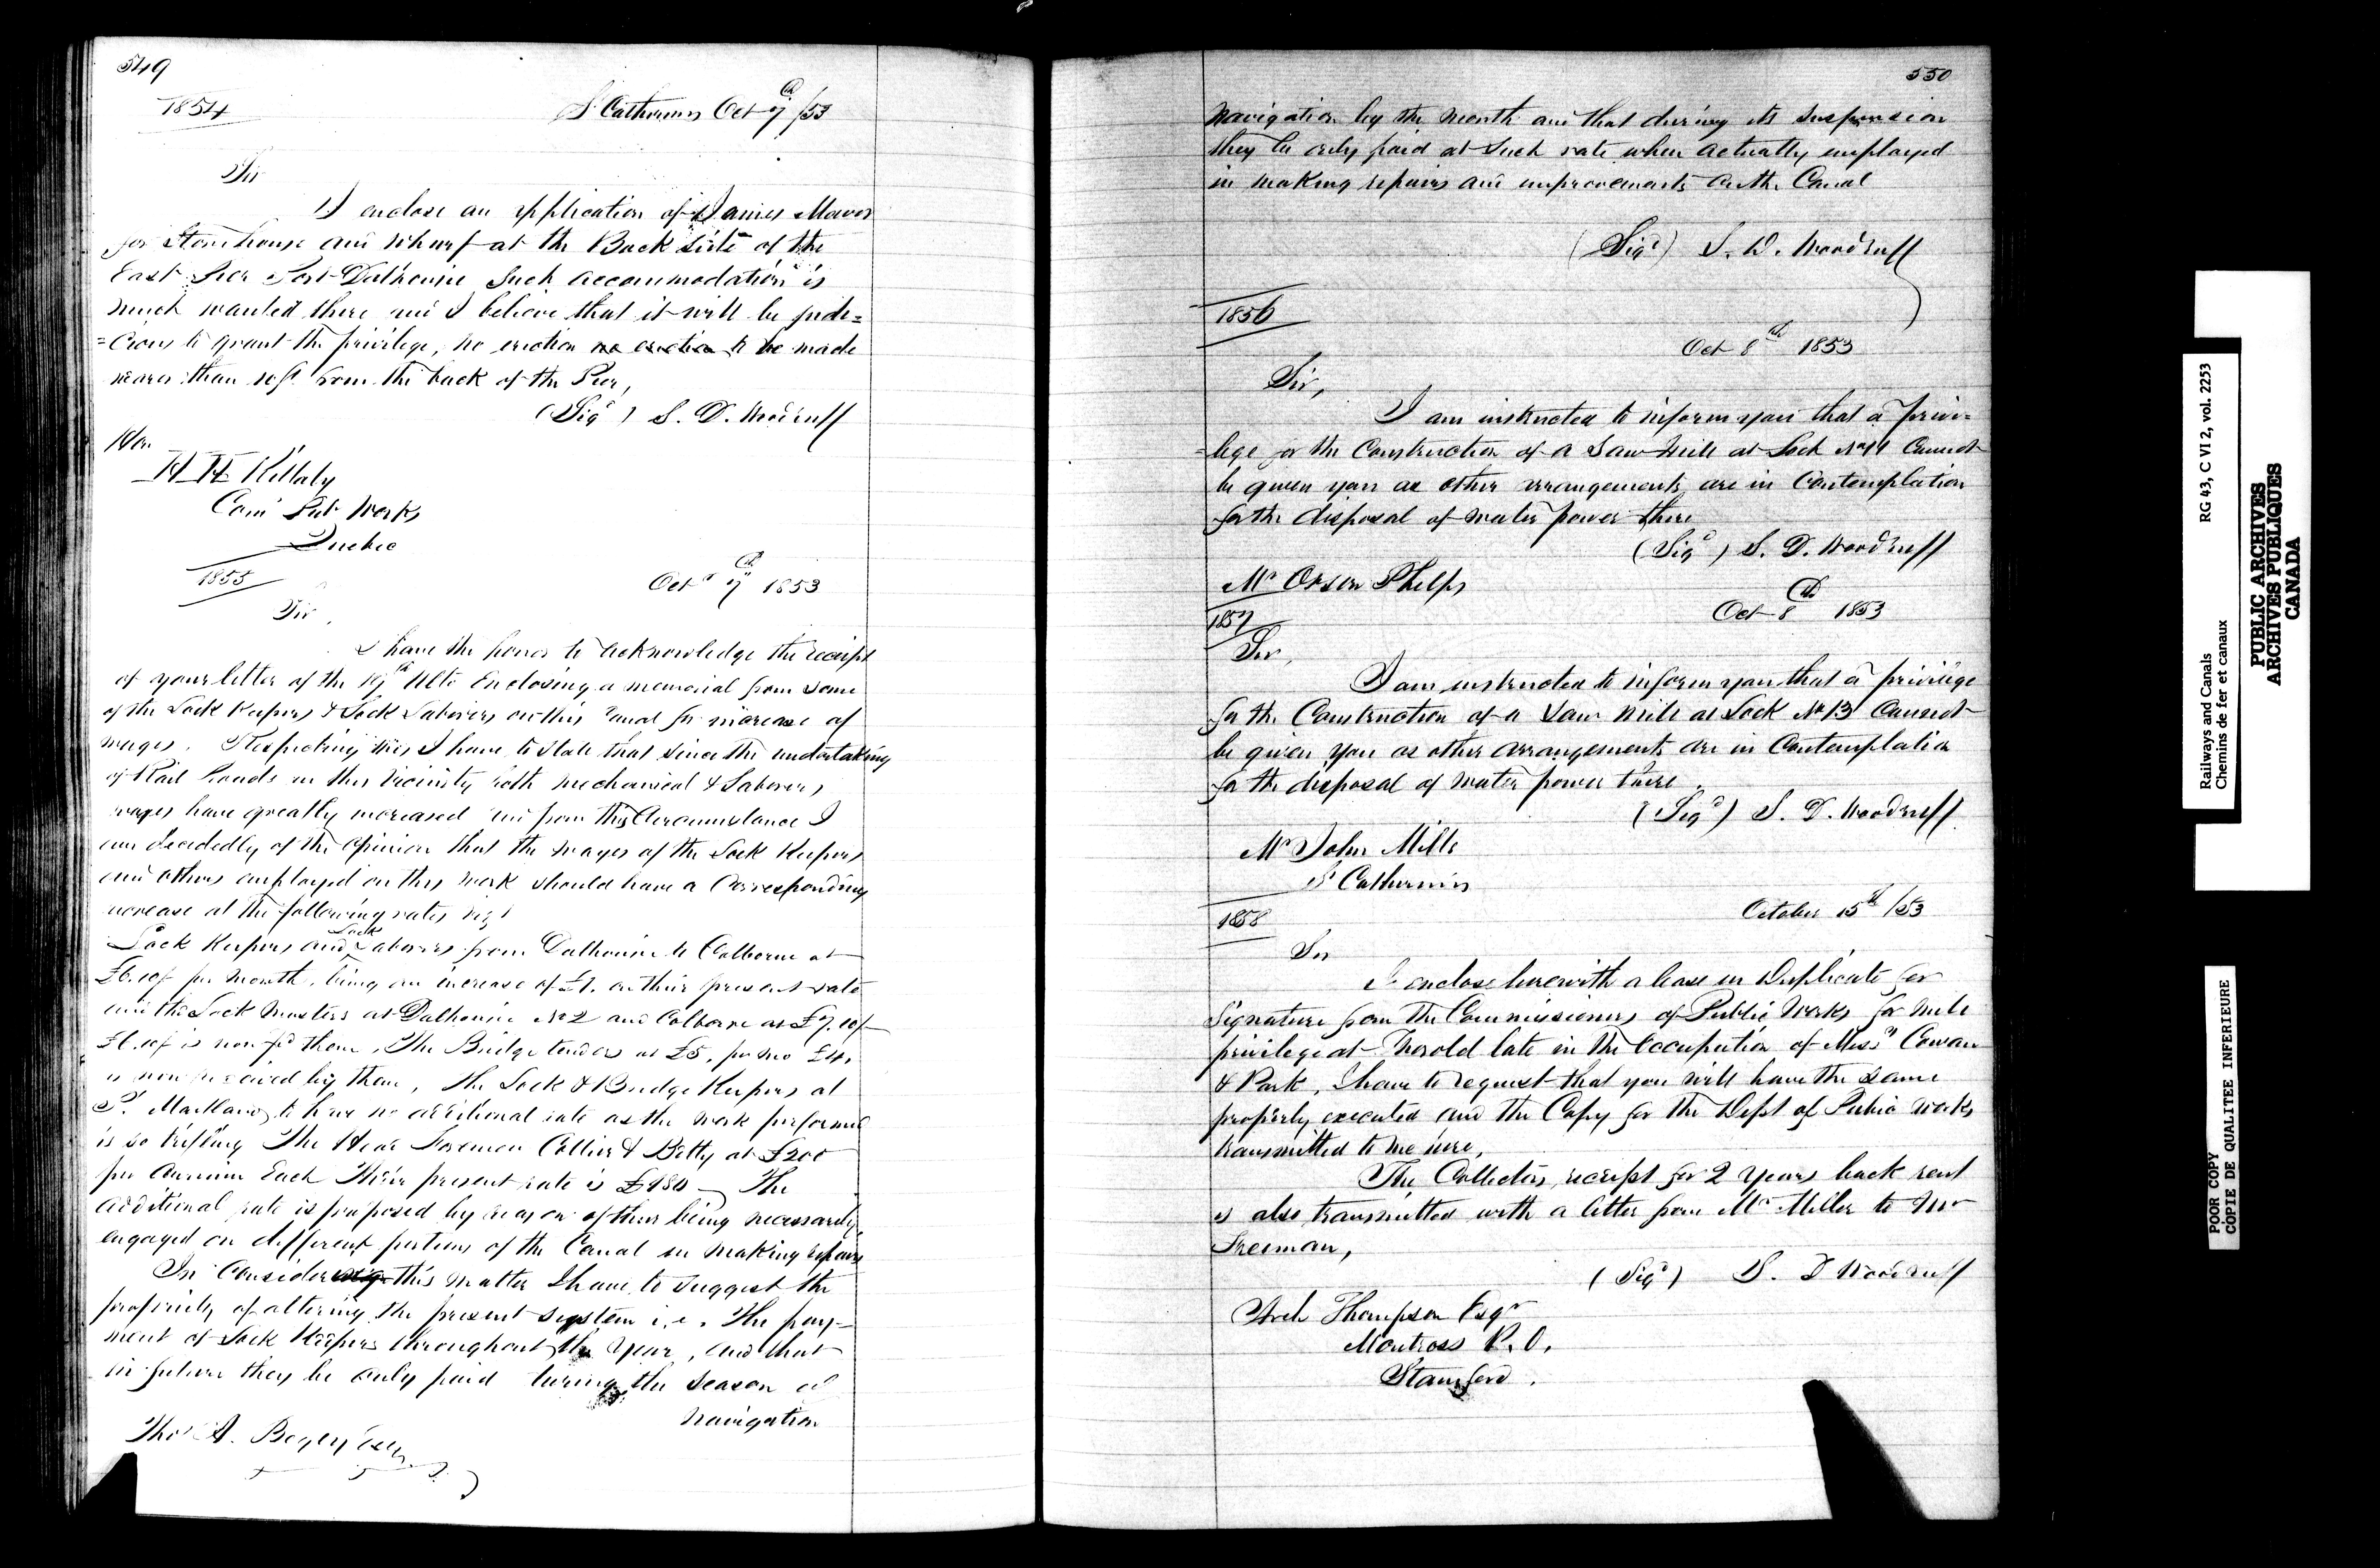 549
1854
St Catharines Oct 7th /53
Sir
I enclose an application of James Maver
for Storehouse and Wharf at the Back side of the
East Pier Port Dalhousie Such accommodation is
much wanted there and I believe that it will be judi=
=cious to grant the privilege, no erection no erection to be made
nearer than 10ft from the back of the Pier,
(Sigd) S. D. Woodruff
Hon
H H Killaly
Com Pub Works
Quebec
1855
Octr 7th 1853
Sir,
I have the honor to acknowledge the receipt
of your letter of the 19th Ulto Enclosing a memorial from some
of the Lock Keepers & Lock Laborers on this Canal for increase of
wages. Respecting this I have to state that since the undertaking
of Rail Roads in this vicinity both mechanical & Laborers
wages have greatly increased and from this Circumstance I
am decidedly of the opinion that the wages of the Lock Keepers
and others employed on this work should have a Corresponding
increase at the following rates viz
Lock Keepers and Lock Laborers from Dalhousie to Colborne at
£6.10/ per month, being an increase of £1. on their present rate
and the Lock Masters at Dalhousie No 2 and Colborne at £7.10/
£6.10/ is now pd them, The Bridge tenders at £5. per mo £4.
is now received by them, The Lock & Bridge Keepers at
Pt Maitland to have no additional rate as the work performed
is so trifling The Head Foremen Collier & Betty at £200
per Annum Each Their present rate is £180 The
additional rate is proposed by reason of their being necessarily
engaged on different portions of the Canal in making repairs
In Considering this matter I have to suggest the
propriety of altering the present system i.e. The pay-
ment of Lock Keepers throughout the Year, and that
in future they be only paid during the season of
navigation
Thos A. Begly Esqr
550
Navigation by the month and that during its suspension
they be only paid at such rate when actually employed
in making repairs and improvements on the Canal
(Sigd) S. D. Woodruff
1856
Oct 8th 1853
Sir,
I am instructed to inform you that a privi=
=lege for the Construction of a Saw Mill at Lock No 11 Cannot
be given you as other arrangements are in Contemplation
for the disposal of water power there
(Sigd) S. D. Woodruff
Mr Orson Phelps
1857
Oct 8th 1853
Sir,
I am instructed to inform you that a privilege
for the Construction of a Saw Mill at Lock No 13 Cannot
be given you as other arrangements are in Contemplation
for the disposal of water power there.
(Sigd) S. D. Woodruff
Mr John Mills
St Catharines
1858
October 15th /53
Sir
I enclose herewith a lease in Duplicate for
Signature from the Commissioners of Public Works for mill
privilege at Thorold late in the Occupation of Messrs Cowan
& Park, I have to request that you will have the same
properly executed and the Copy for the Dept of Public Works
transmitted to me here,
The Collectors receipt for 2 Years back rent
is also transmitted with a letter from Mr Miller to Mr
Freeman,
(Sigd) S. D Woodruff
Arch Thompson Esqr
Montross P. O.
Stamford.
Railways and Canals RG 43, C VI 2, vol. 2253
Chemins de fer et canaux
PUBLIC ARCHIVES
ARCHIVES PUBLIQUES
CANADA
POOR COPY
COPIE DE QUALITEE INFERIEURE